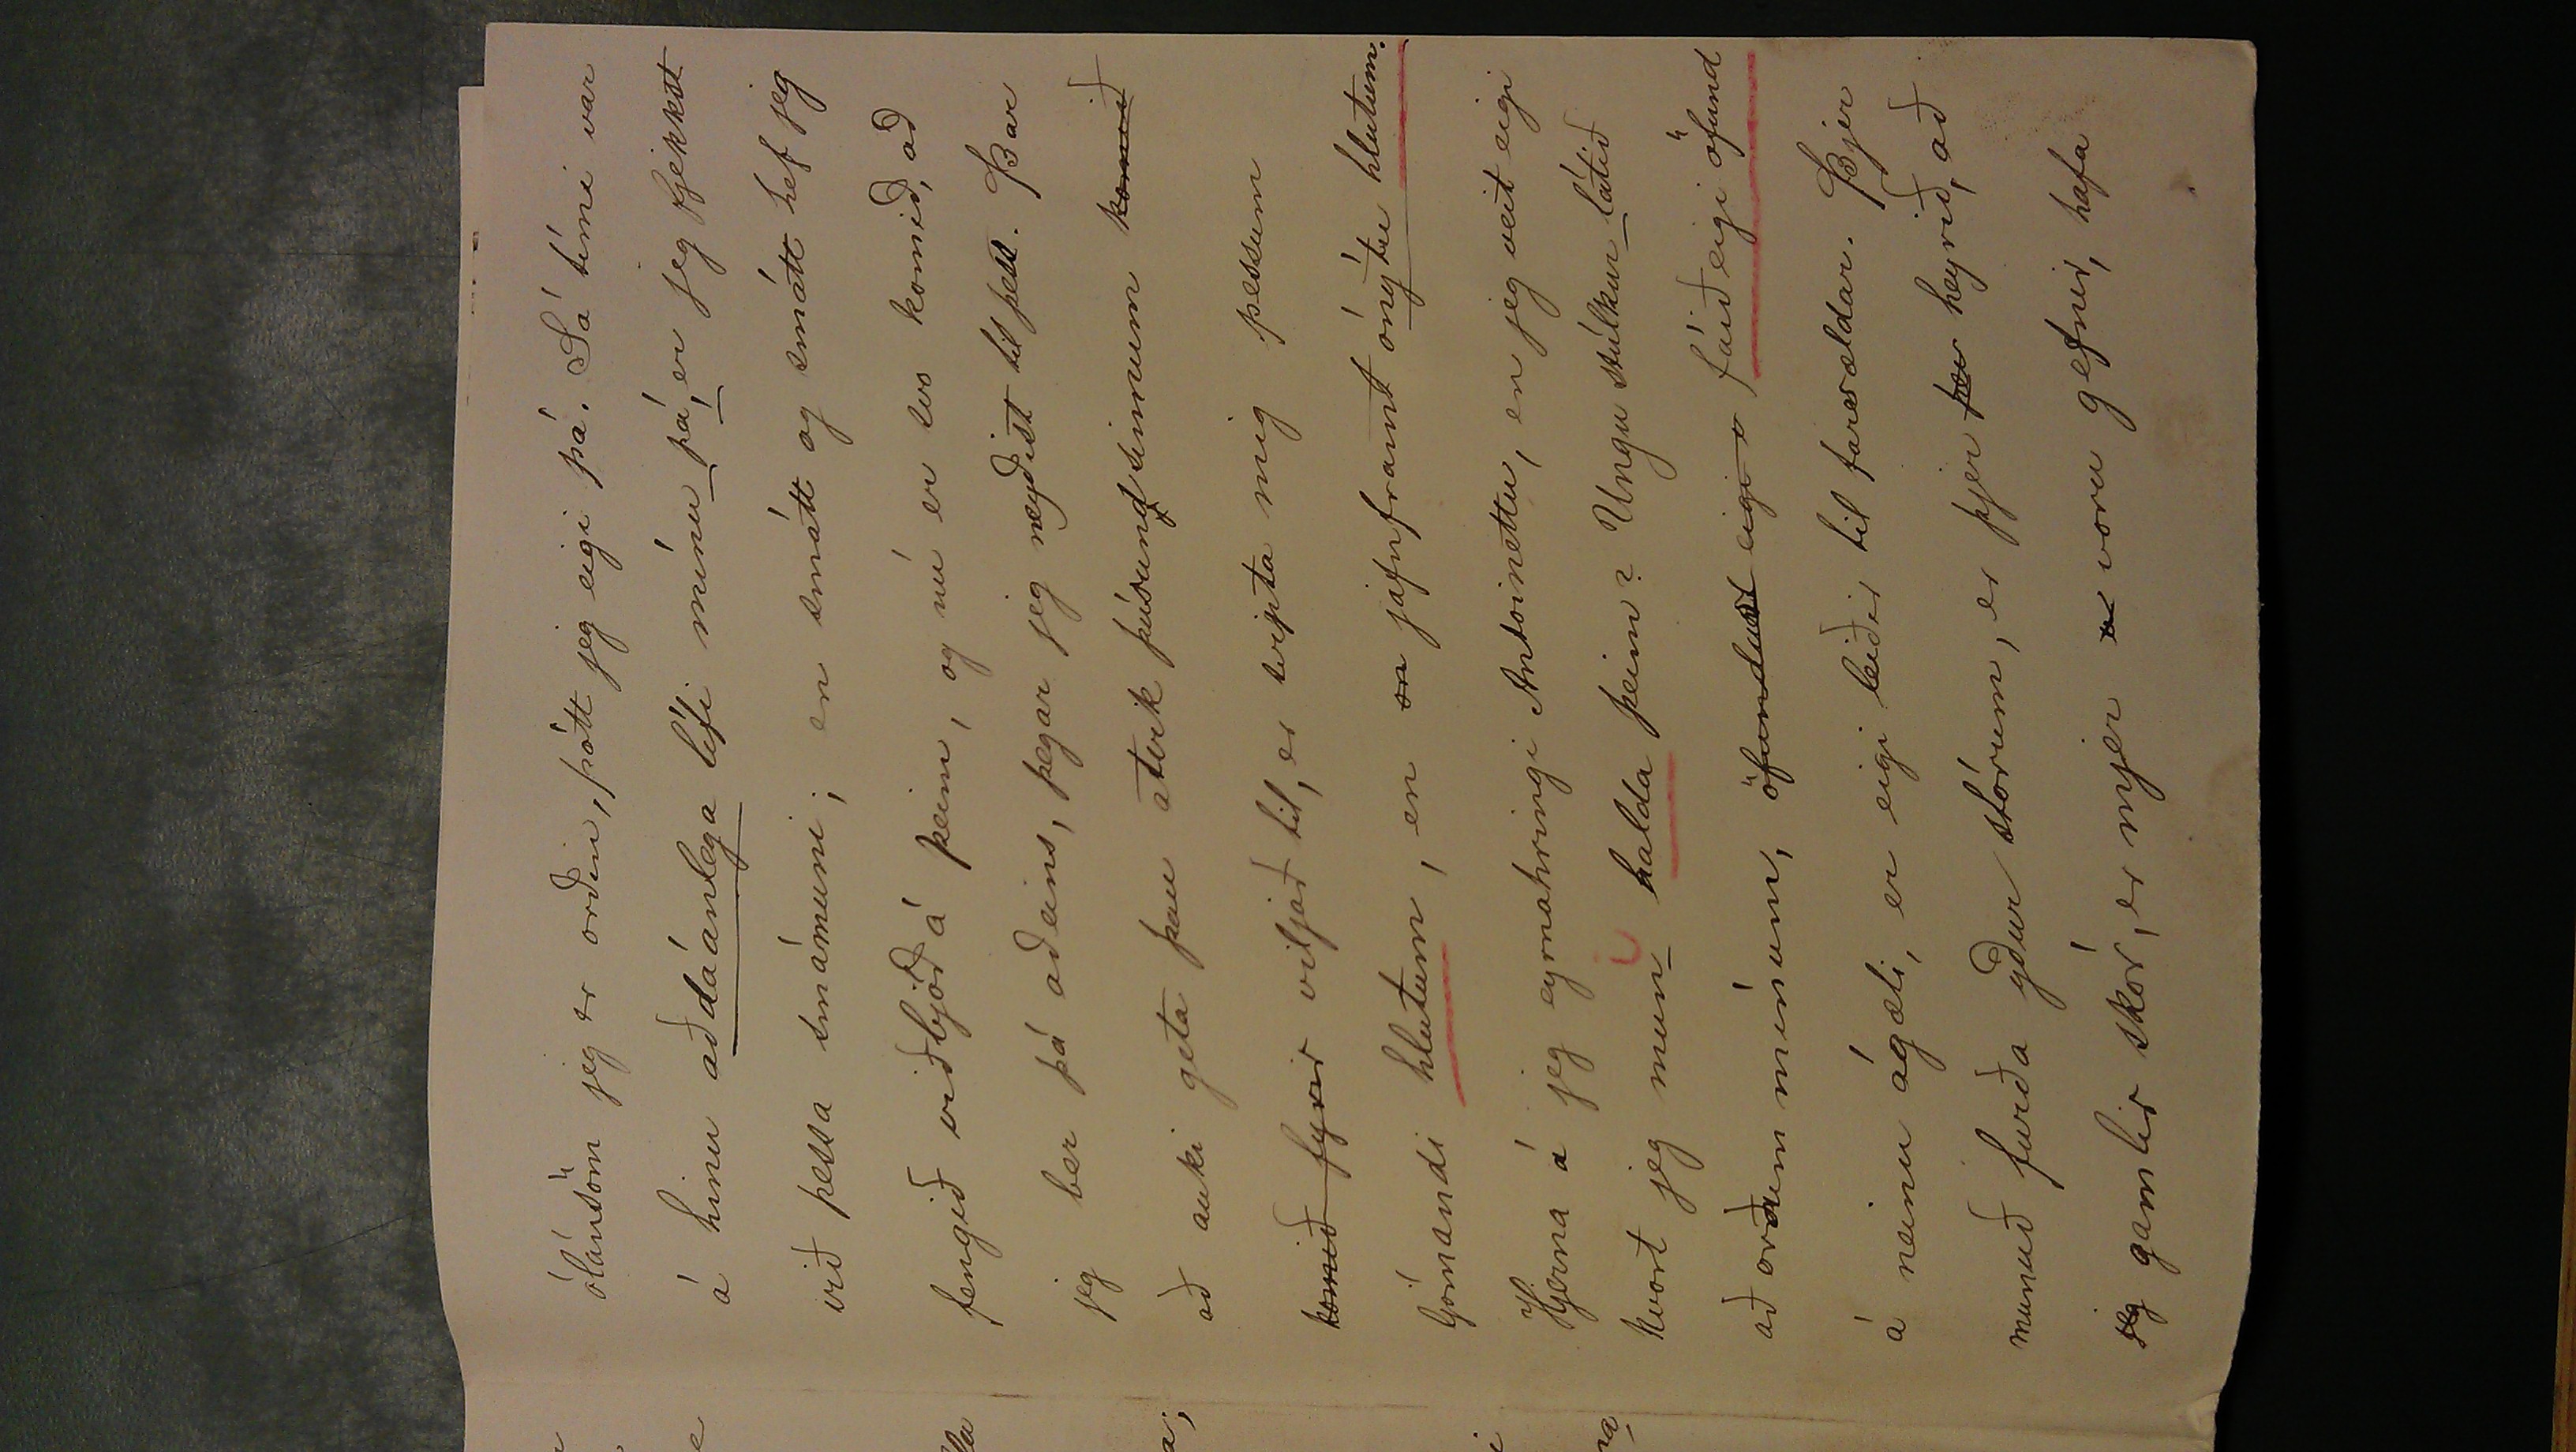 ólánsöm jeg er orðin, þótt jeg eigi þá. Sá tími var
á hinu aðdáanlega lífi mínu þá, er jeg fjekkst
við þessa smámuni; en smátt og smátt hef jeg
fengið viðbjóð á þeim, og nú er svo komið, að
jeg ber þá aðeins, þegar jeg neyðist til þess. Þar
að auki geta þau atvik þúsund sinnum komið
komið fyrir viljað til, er svipta mig þessum
ljómandi hlutum, en en jafnframt ónýtu hlutum.
Hjerna á jeg eyrnahringi Antoinettu, en jeg veit eigi
hvort jeg mun halda þeim? Ungu stúlkur látið
að orðum mínum, öfundist eigi o fáið eigi öfund
á neinu ágæti, er eigi leiðir til farsældar. Þjer
munuð furða yður stórum, er þjer þer heyrið, að
jeg gamlir skór, er mjer voru gefnir, hafa